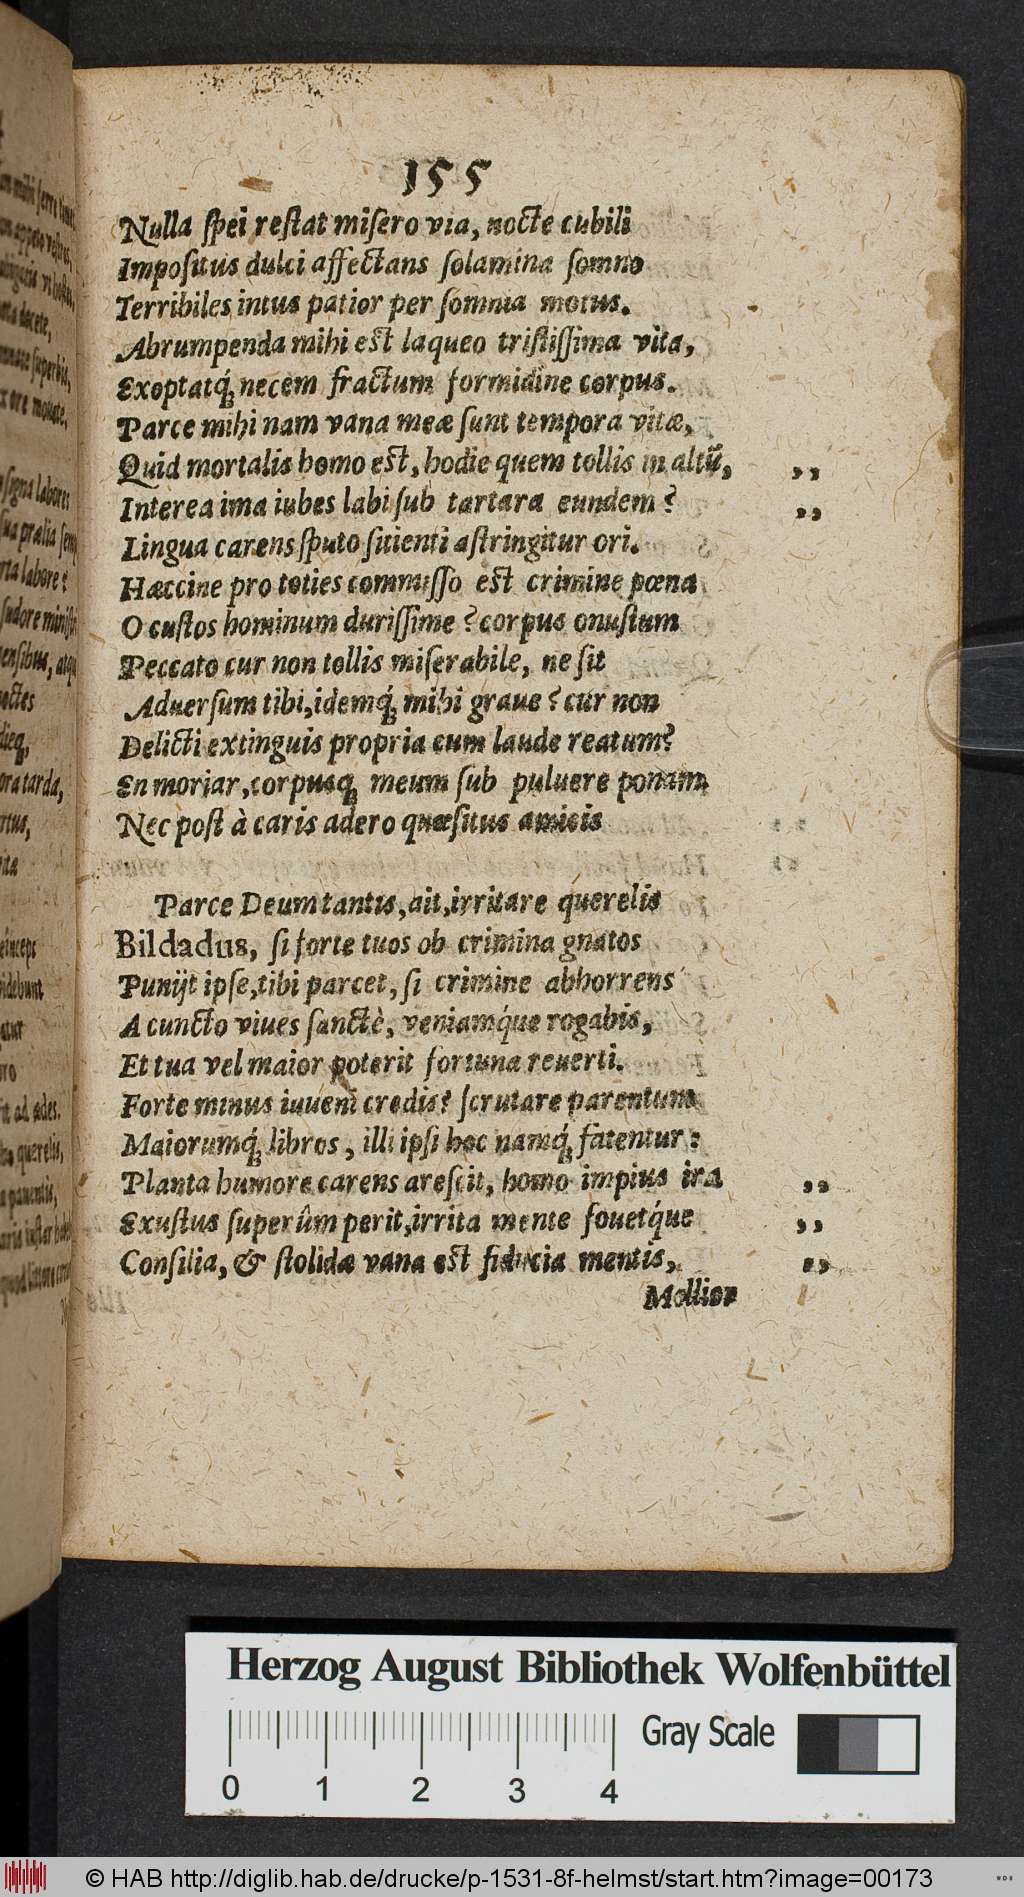 155
Nulla ſpei reſtat miſero via, nocte cubili
Impoſitus dulci affectans ſolamina ſomno
Terribiles intus patior per ſomnia motus.
Abrumpenda mihi est laqueo triſtiſſima vita,
Exoptatq́; necem fractum formidine corpus.
Parce mihi nam vana meæ ſunt tempora vitæ,
Quid mortalis homo est, hodie quem tollis in altũ, ,,
Interea ima iubes labi ſub tartara eundem? ,,
Lingua carens ſputo ſitienti aſtringitur ori.
Hæccine pro toties commiſſo est crimine pœna
O cuſtos hominum duriſſime? corpus onuſtum
Peccato cur non tollis miſerabile, ne ſit
Aduerſum tibi, idemq́; mihi graue? cur non
Delicti extinguis propria cum laude reatum?
En moriar, corpusq; meum ſub puluere ponam,
Nec poſt à caris adero quæſitus amicis
Parce Deum tantis, ait, irritare querelis
Bildadus, ſi forte tuos ob crimina gnatos
Punijt ipſe, tibi parcet, ſi crimine abhorrens
A cuncto viues ſanctè, veniamq́ue rogabis,
Et tua vel maior poterit fortuna reuerti.
Forte minus iuueni credis? ſcrutare parentum
Maiorumq́; libros, illi ipſi hoc namq́; fatentur:
Planta humore carens areſcit, homo impius ira ,,
Exuſtus ſuperûm perit, irrita mente fouetq́ue ,,
Conſilia, & ſtolidæ vana est fiducia mentis, ,,
Mollior
Herzog August Bibliothek Wolfenbüttel
Gray Scale
0 1 2 3 4
© HAB http://diglib.hab.de/drucke/p-1531-8f-helmst/start.htm?image=00173